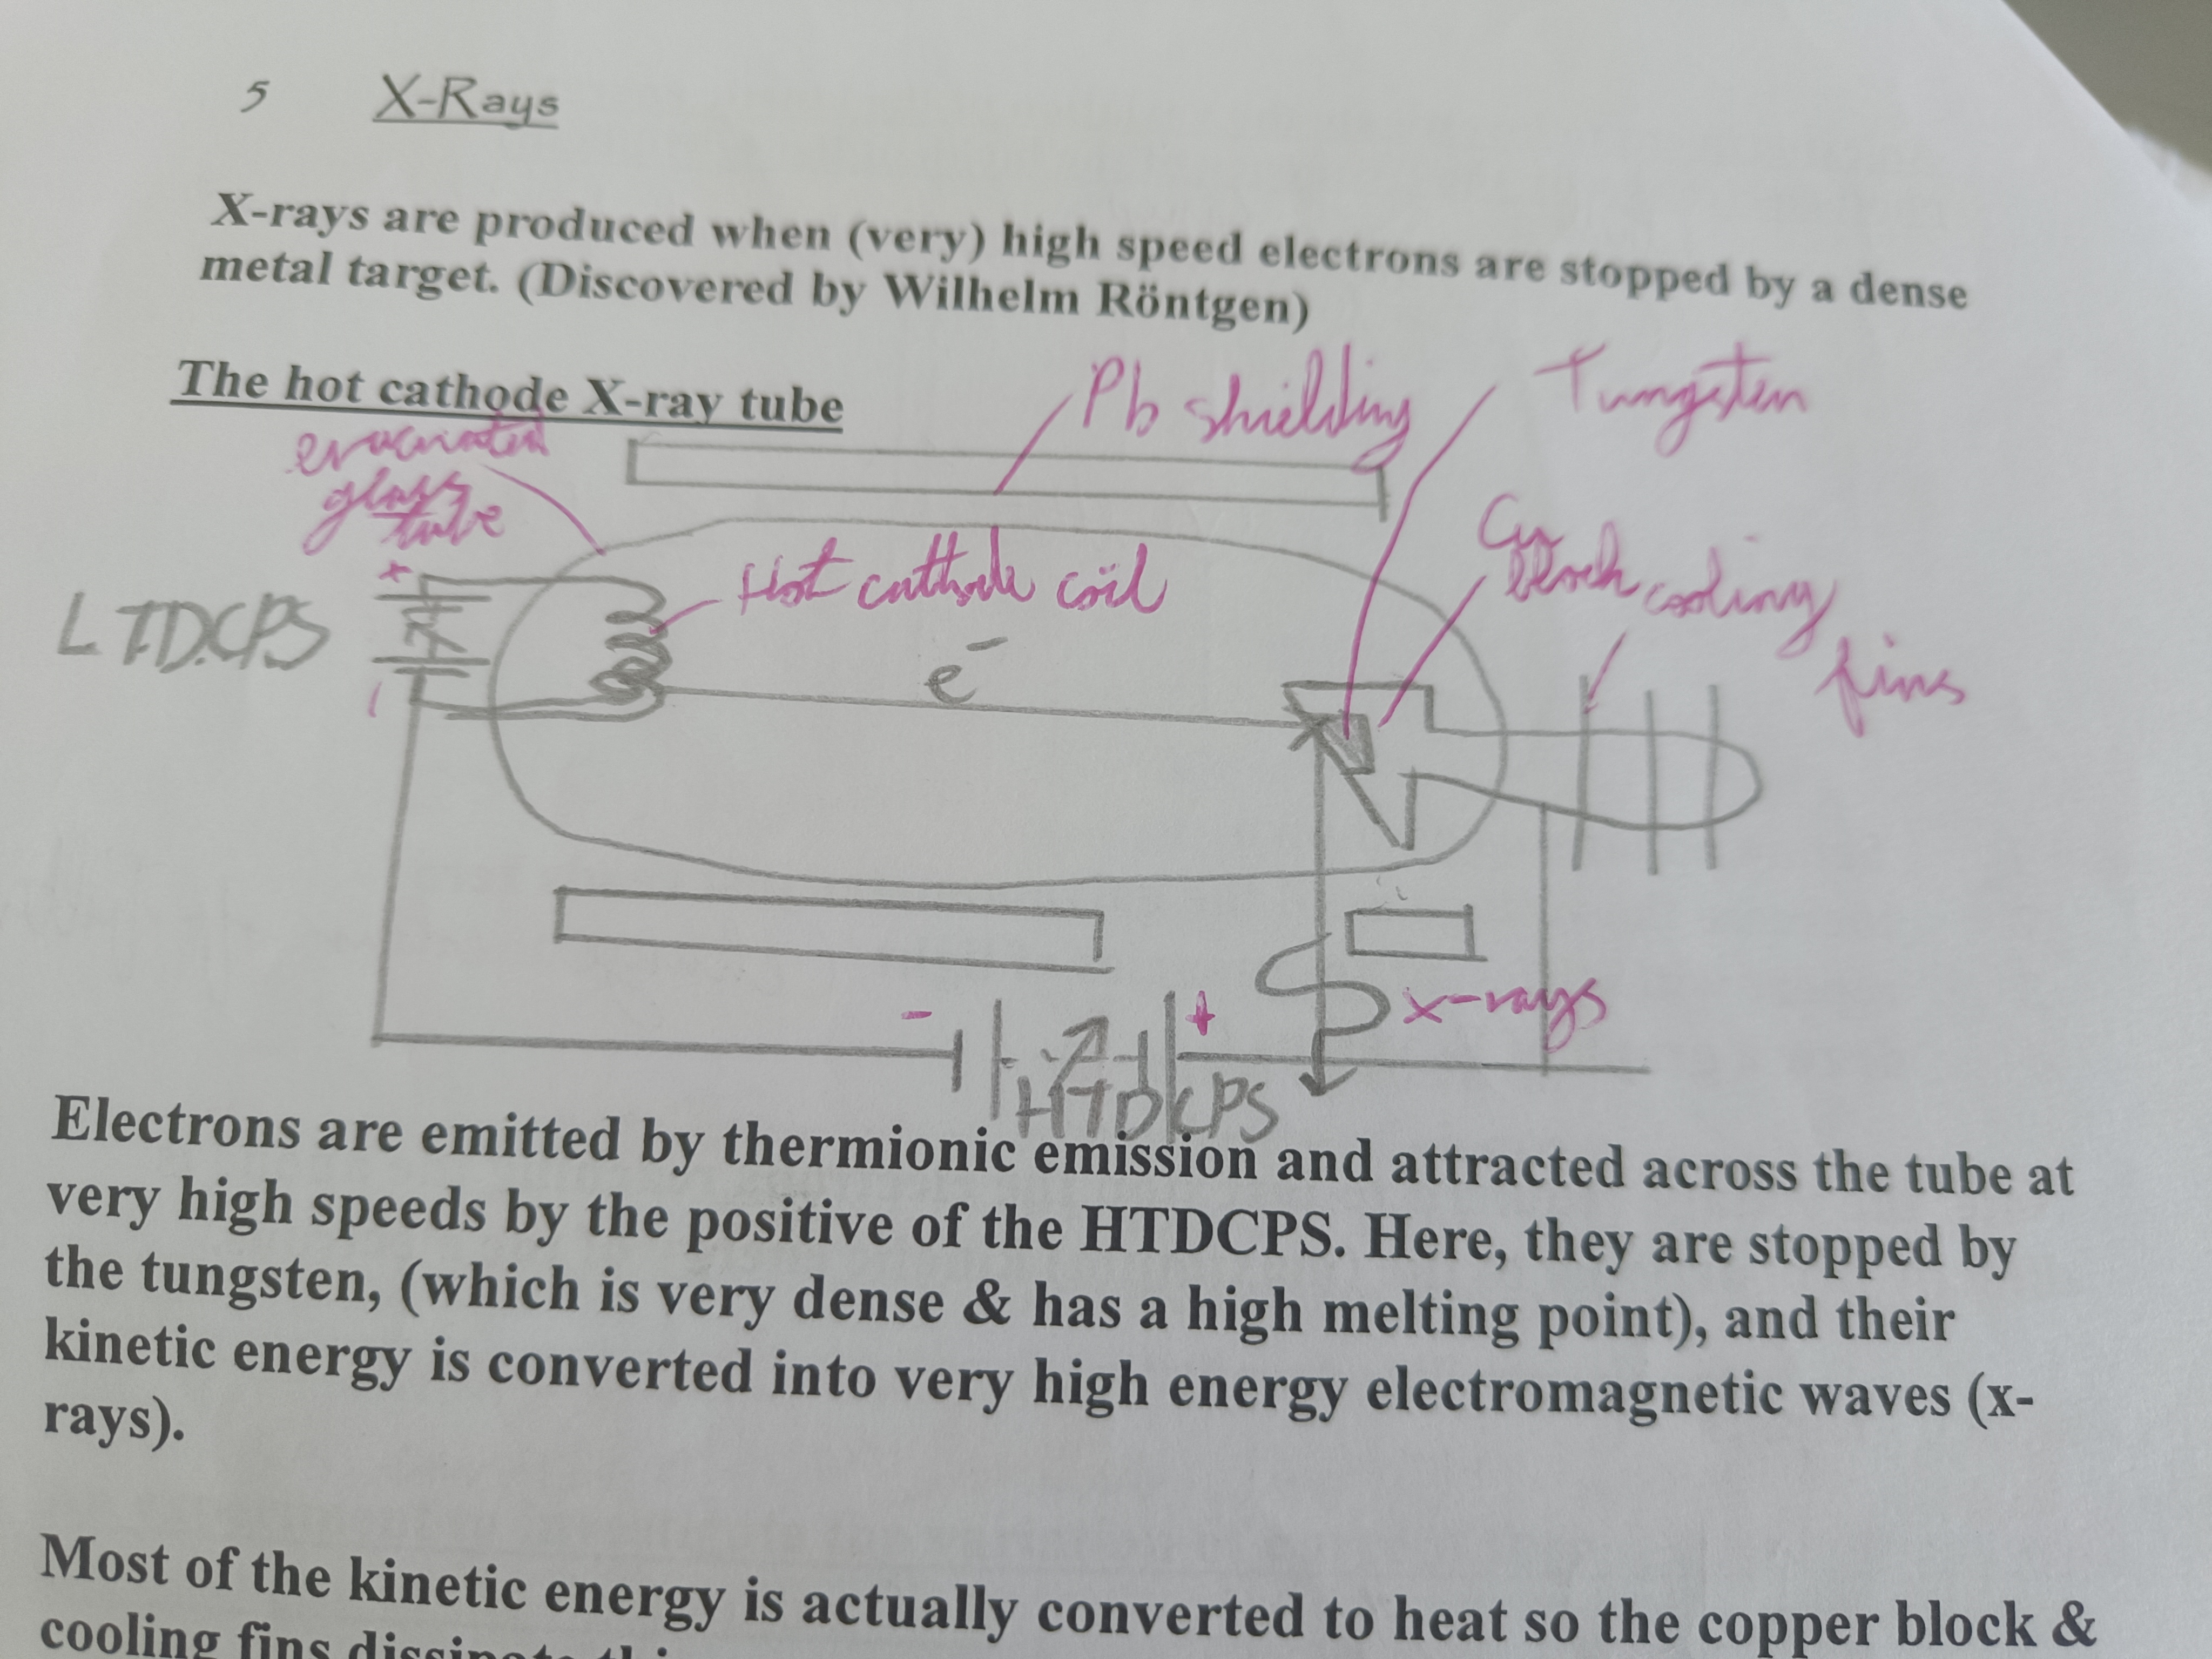 5 X-Rays
X-rays are produced when (very) high speed electrons are stopped by a dense
metal target. (Discovered by Wilhelm Röntgen)
The hot cathode X-ray tube
Pb shielding
Tungsten
evacuated
glass
tube
Cu
block
cooling
fins
+
Hot cathode coil
LTDCPS
e⁻
-
x-rays
- +
HTDCPS
Electrons are emitted by thermionic emission and attracted across the tube at
very high speeds by the positive of the HTDCPS. Here, they are stopped by
the tungsten, (which is very dense & has a high melting point), and their
kinetic energy is converted into very high energy electromagnetic waves (x-
rays).
Most of the kinetic energy is actually converted to heat so the copper block &
cooling fins dissipate